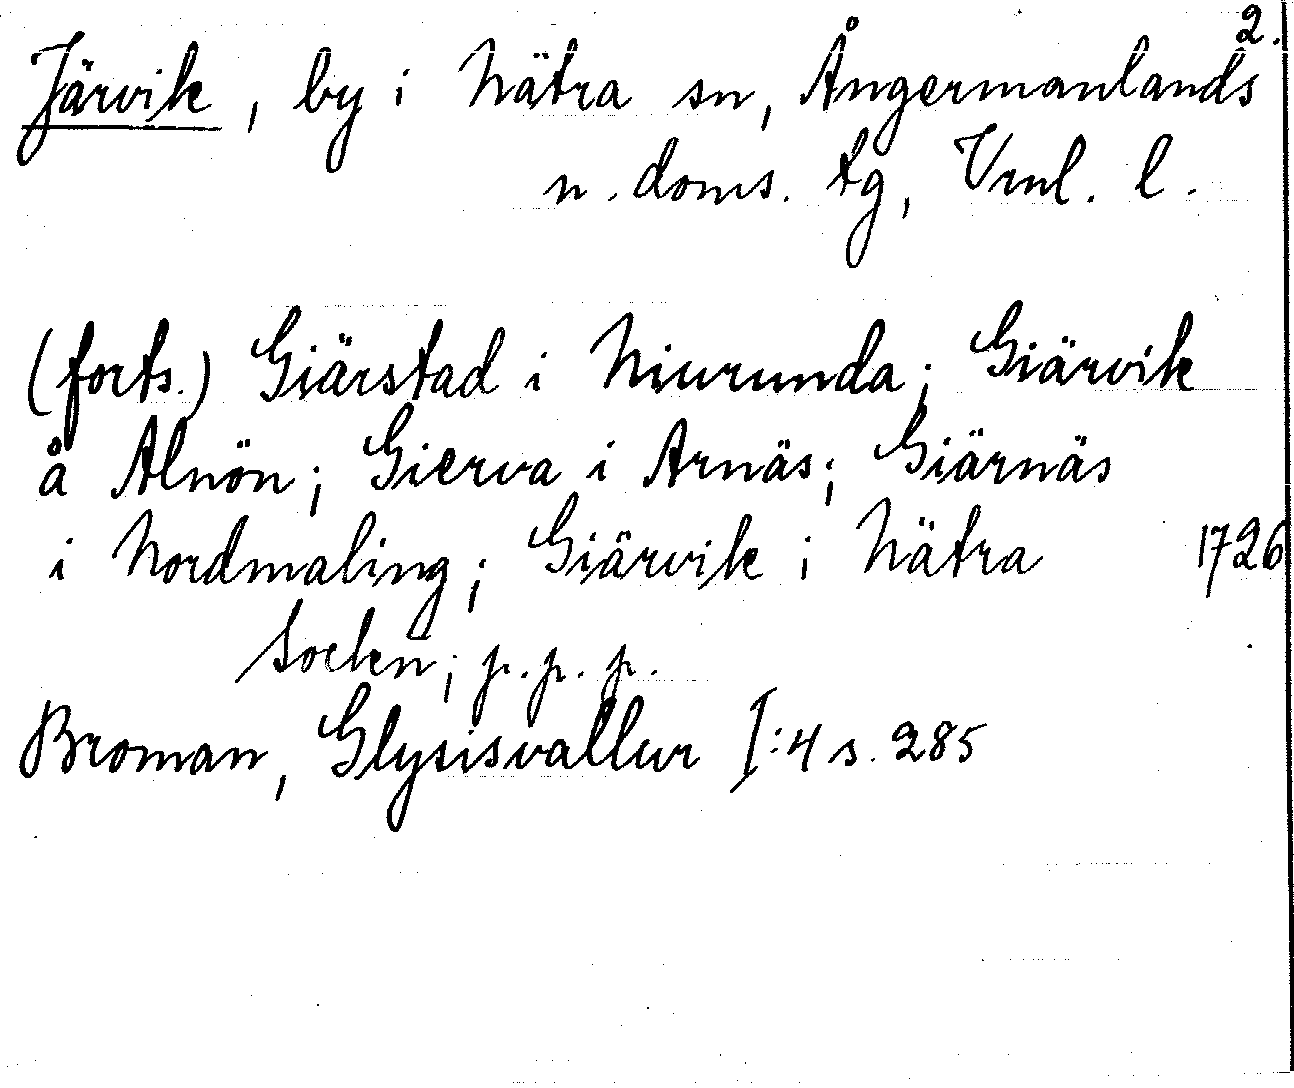 2.
Järvik, by i Nätra sn, Ångermanlands
n. doms. tg, Vrnl. l.
(forts.) Giärstad i Niurunda; Giärvik
å Alnön; Gierva i Arnäs; Giärnäs
i Nordmaling; Giärvik i Nätra 1726
Socken; p.p.p.
Broman, Glysisvallur I:4 s. 285